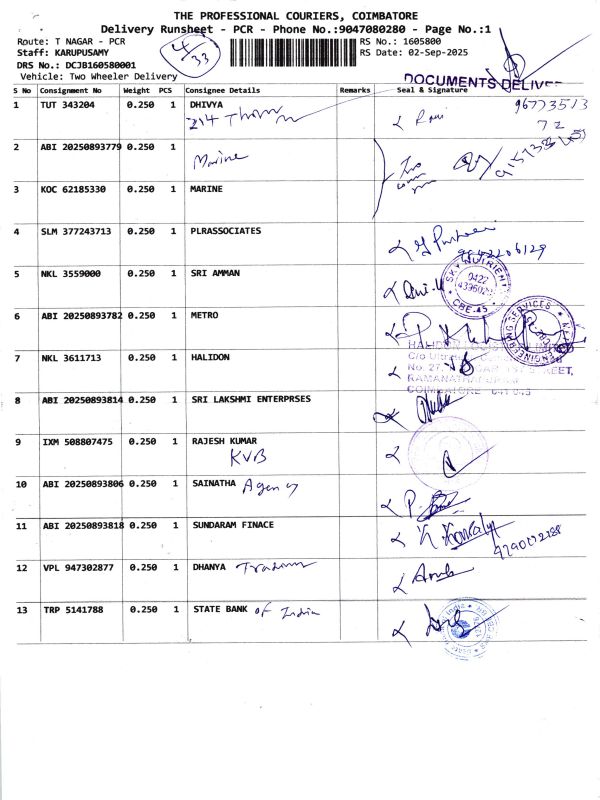 THE PROFESSIONAL COURIERS, COIMBATORE
Delivery Runsheet - PCR - Phone No.:9047080280 - Page No.:1
Route: T NAGAR - PCR
Staff: KARUPUSAMY
DRS No.: DCJB160580001
Vehicle: Two Wheeler Delivery
4/33
RS No.: 1605800
RS Date: 02-Sep-2025
DOCUMENTS DELIVE
S No Consignment No Weight PCS Consignee Details Remarks Seal & Signature
1 TUT 343204 0.250 1 DHIVYA
2 ABI 20250893779 0.250 1
Marine
3 KOC 62185330 0.250 1 MARINE
4 SLM 377243713 0.250 1 PLRASSOCIATES
5 NKL 3559000 0.250 1 SRI AMMAN
SKY NUTRIENT
0422
CBE-45
6 ABI 20250893782 0.250 1 METRO
ENGINEERING SERVICES
7 NKL 3611713 0.250 1 HALIDON
No. 27,
COIMBATORE
8 ABI 20250893814 0.250 1 SRI LAKSHMI ENTERPRSES
9 IXM 508807475 0.250 1 RAJESH KUMAR
KVB
10 ABI 20250893806 0.250 1 SAINATHA Agency
11 ABI 20250893818 0.250 1 SUNDARAM FINACE
12 VPL 947302877 0.250 1 DHANYA
13 TRP 5141788 0.250 1 STATE BANK of India